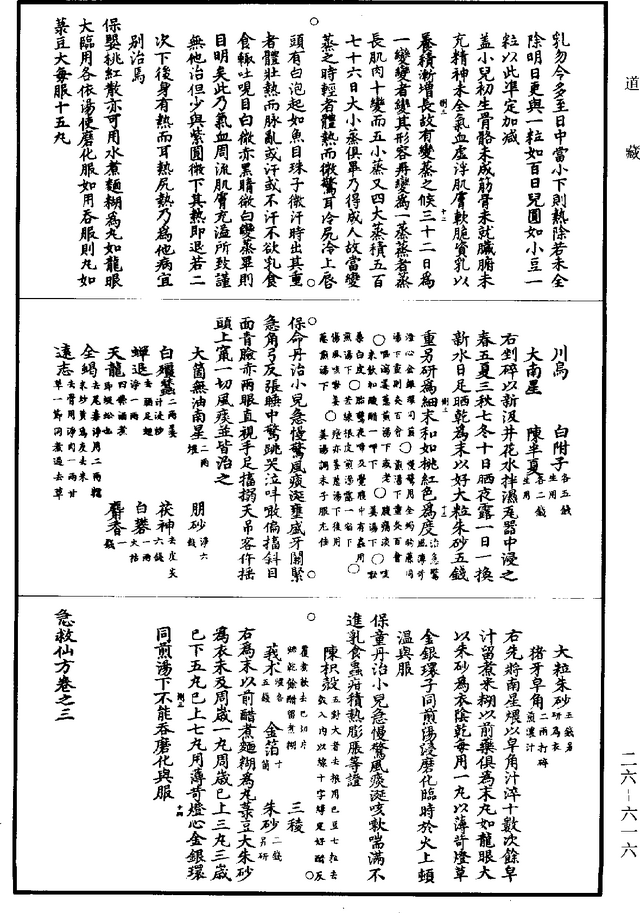 道藏
乳勿令多至日中當小下則熱除若未全
除明日更與一粒如百日兒圓如小豆一
粒以此準定加減
蓋小兒初生骨骼未成筋骨未就臟腑未
充精神未全氣血虛浮肌膚軟脆資乳以
養積漸增長故有變蒸之候三十二日為
一變變者變其形容再變為一蒸蒸者蒸
長肌肉十變而五小蒸又四大蒸積五百
七十六日大小蒸俱畢乃得成人故當變
蒸之時輕者體熱而微驚耳冷尻冷上唇
頭有白泡起如魚目珠子微汗時出其重
者體壯熱而脉亂或汗或不汗不欲乳食
食輒吐哯目白微赤黑睛微白變蒸畢則
目明矣此乃氣血周流肌膚充溢所致謹
無他治但少與紫圓微下其熱即退若二
次下後身有熱而耳熱尻熱乃為他病宜
別治焉
保嬰桃紅散亦可用水煮麵糊為丸如龍眼
大臨用各依湯使磨化服如用吞服則丸如
菉豆大每服十五丸
川烏 白附子各五錢生用
大南星 陳半夏各二錢生用
右剉碎以新汲井花水拌濕瓦器中浸之
春五夏三秋七冬十日晒夜露一日一換
新水日足晒乾為末以好大粒朱砂五錢
重另研為細末和如桃紅色為度
保命丹治小兒急慢驚風痰涎壅盛牙關緊
急角弓反張睡中驚跳哭泣呌啾偏搐斜目
面青臉赤兩眼直視手足搐搦天吊客忤搖
頭上竄一切風痰並皆治之
大箇無油南星二兩煨 朋砂淨六錢
白殭蠶二兩薑汁浸炒 茯神六錢去皮炙
蟬退去腦足翅淨一兩 白礬一兩火枯
天龍四條酒煮即蜈蚣也 麝香一錢
全蝎
遠志
大粒朱砂五錢另研為衣
猪牙皁角二兩打碎煎濃汁
右先將南星煨以皁角汁淬十數次餘皁
汁留煮米糊以前藥俱為末丸如龍眼大
以朱砂為衣陰乾每用一丸以薄苛燈草
金銀環子同煎湯浸磨化臨時於火上頓
溫與服
保童丹治小兒急慢驚風痰涎咳軟喘滿不
進乳食蟲疳積熱膨脹等證
陳枳殼
莪术五錢 金箔十箇 三稜
朱砂二錢另研
右為末以前醋煮麵糊為丸菉豆大朱砂
為衣未及周歲一丸周歲已上三丸三歲
已下五丸已上七丸用薄苛燈心金銀環
同煎湯下不能吞磨化與服
急救仙方卷之三
二六－六一六